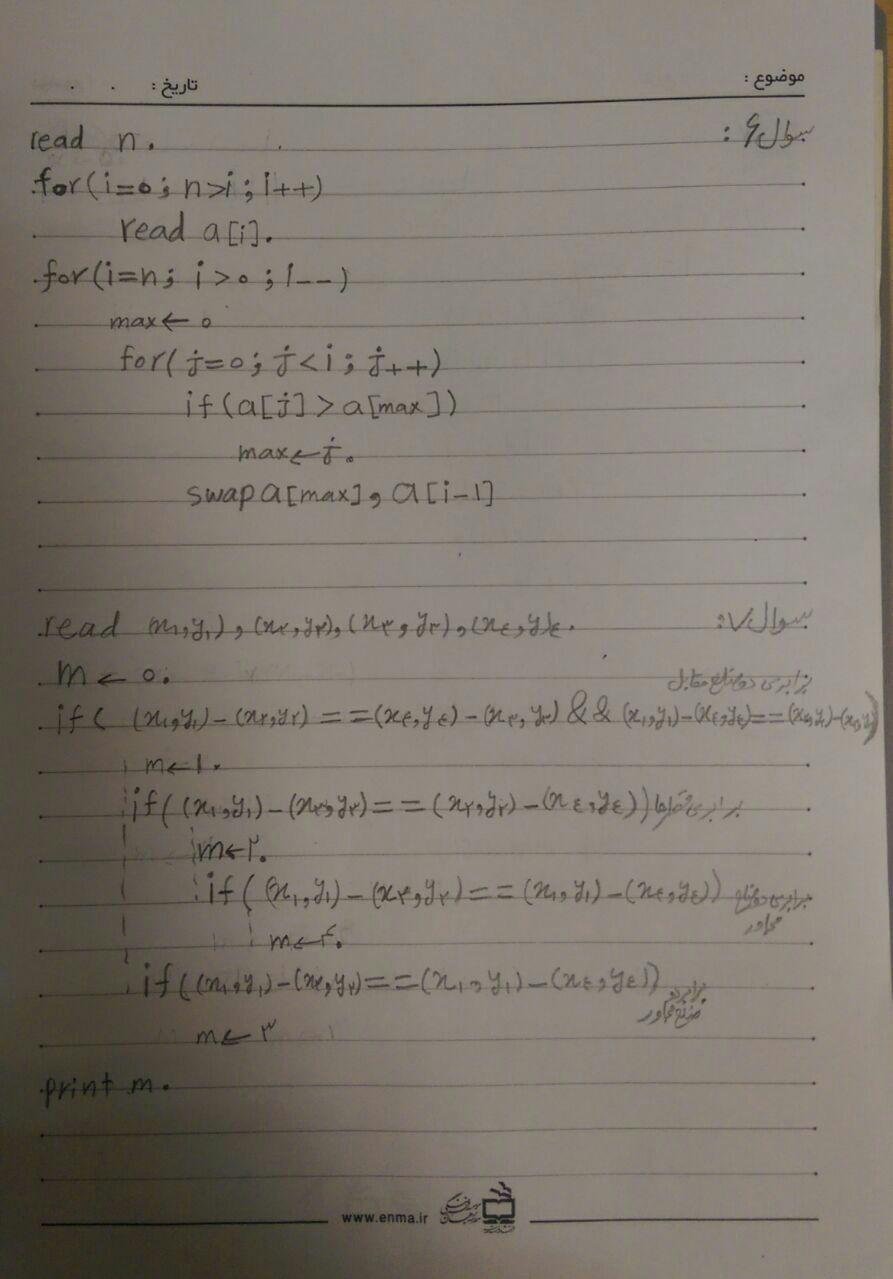 موضوع :
تاریخ :
سوال ۶ :
read n.
for(i=0; n>i; i++)
read a[i].
for(i=n; i>0; i--)
max ← 0
for(j=0; j<i; j++)
if(a[j] > a[max])
max ← j.
swap a[max], a[i-1]
سوال ۷:
read (x₁,y₁), (x۲,y۲), (x۳,y۳), (x٤,y٤).
m ← 0.
برابری دو ضلع مقابل
if( (x₁,y₁)-(x۲,y۲) == (x٤,y٤)-(x۳,y۳) && (x₁,y₁)-(x٤,y٤)==
m←۱.
if((x₁,y₁)-(x۳,y۳) == (x۲,y۲)-(x٤,y٤)) برابری قطرها
m←۲.
if( (x₁,y₁)-(x۲,y۲) == (x₁,y₁)-(x٤,y٤)) برابری دو ضلع
مجاور
m←۴.
if((x₁,y₁)-(x۲,y۲) == (x₁,y₁)-(x٤,y٤)) برابری دو
ضلع مجاور
m← ۳
print m.
www.enma.ir